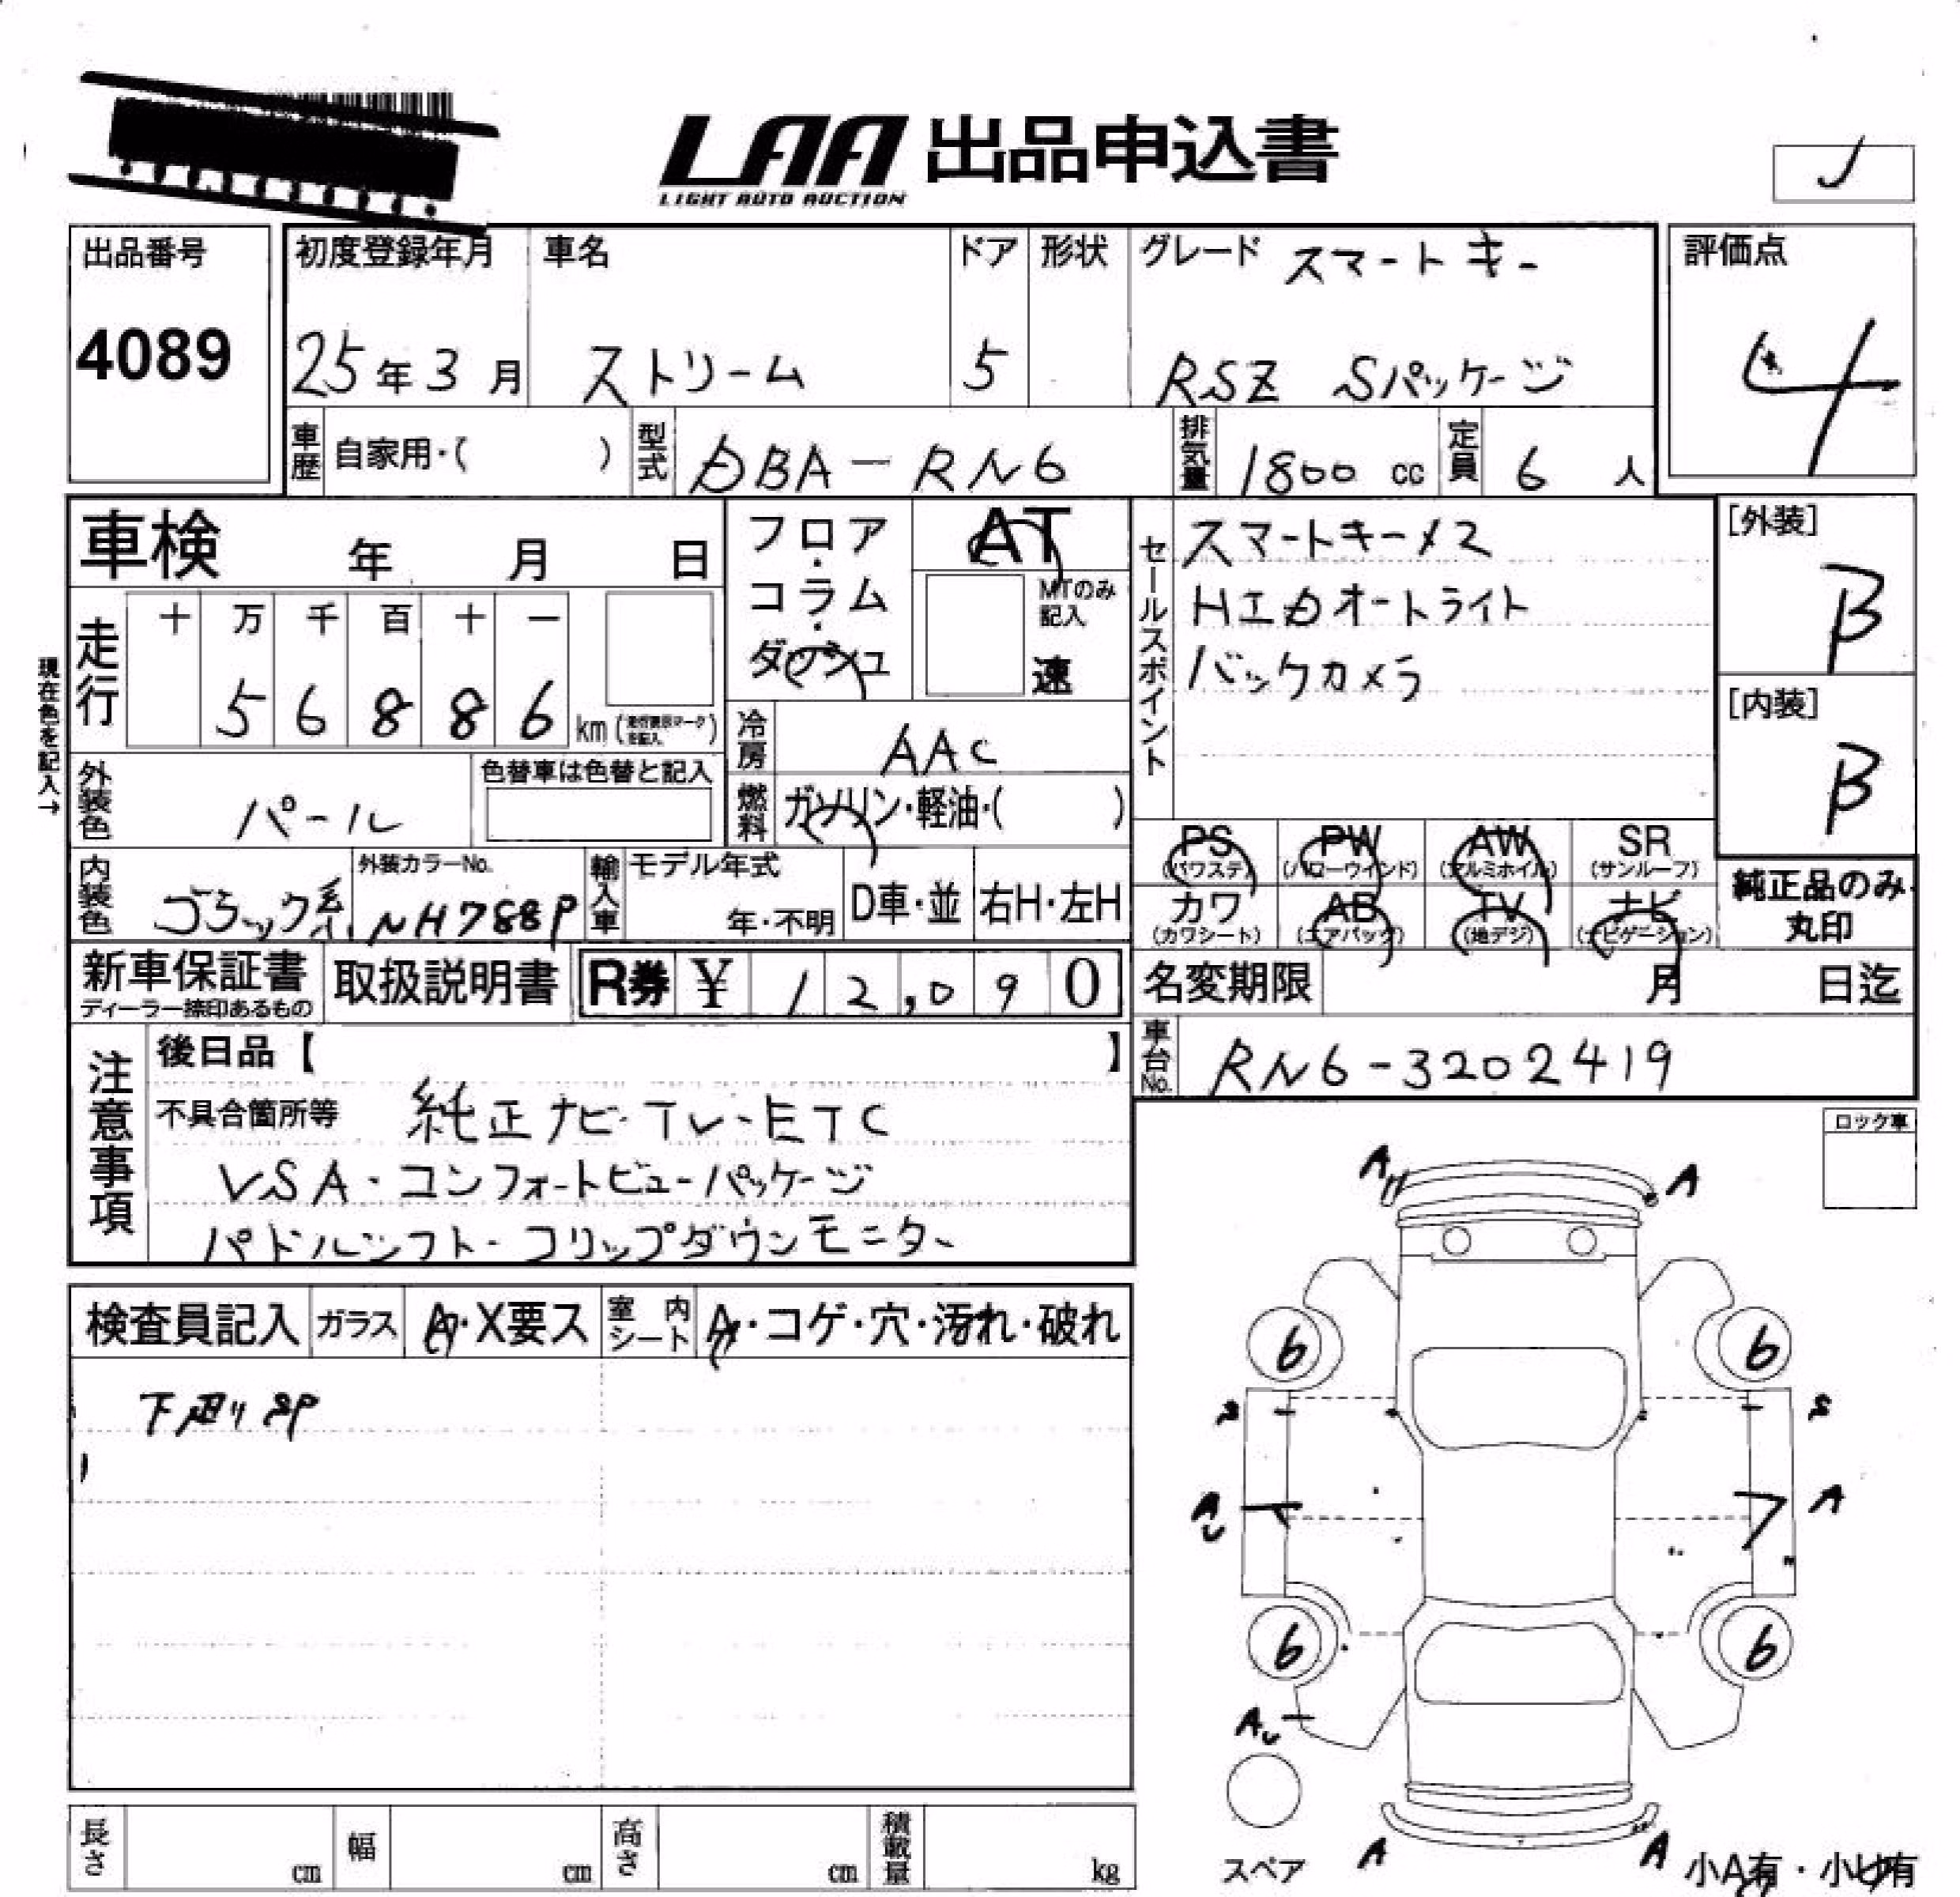 LAA 出品申込書
LIGHT AUTO AUCTION
出品番号
4089
初度登録年月
25年3月
車名
ストリーム
ドア
5
形状
グレード スマートキー
RSZ Sパッケージ
評価点
4
車歴 自家用・( )
型式 DBA-RN6
排気量 1800 cc
定員 6 人
車検 年 月 日
フロア・コラム・ダッシュ
AT
MTのみ記入
速
セールスポイント
スマートキー×2
HIDオートライト
バックカメラ
[外装]
B
[内装]
B
現在色を記入→
走行 十 万 千 百 十 一
5 6 8 8 6 km
冷房 AAC
燃料 ガソリン・軽油・( )
外装色 パール
色替車は色替と記入
内装色 ブラック系
外装カラーNo.
NH788P
輸入車 モデル年式
年・不明
D車・並 右H・左H
PS (パワステ) PW (パワーウインド) AW (アルミホイル) SR (サンルーフ)
カワ (カワシート) AB (エアバック) TV (地デジ) ナビ (ナビゲーション)
純正品のみ丸印
新車保証書
ディーラー捺印あるもの
取扱説明書
R券 ¥ 12,090
名変期限 月 日迄
車台No. RN6-3202419
注意事項
後日品【 】
不具合箇所等 純正ナビ・TV・ETC
VSA・コンフォートビューパッケージ
パドルシフト・フリップダウンモニター
ロック車
検査員記入 ガラス A・X要ス 室内シート A・コゲ・穴・汚れ・破れ
下廻りSP
A A
6 6
A
A
6 6
A
A A
スペア
小A有・小U有
長さ cm 幅 cm 高さ cm 積載量 kg